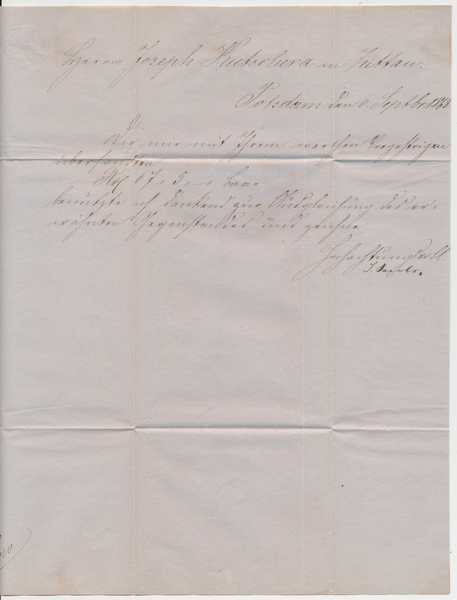 Herrn Joseph Kutschera in Zittau.
Potsdam den 6. Septbr 1868
Die mir mit Ihrem werthen Vorgestrigen
übersandten
67, 5, – baar
benutzte ich dankend zur Ausgleichung des er-
wähnten Gegenstandes und zeichne
Hochachtungsvoll